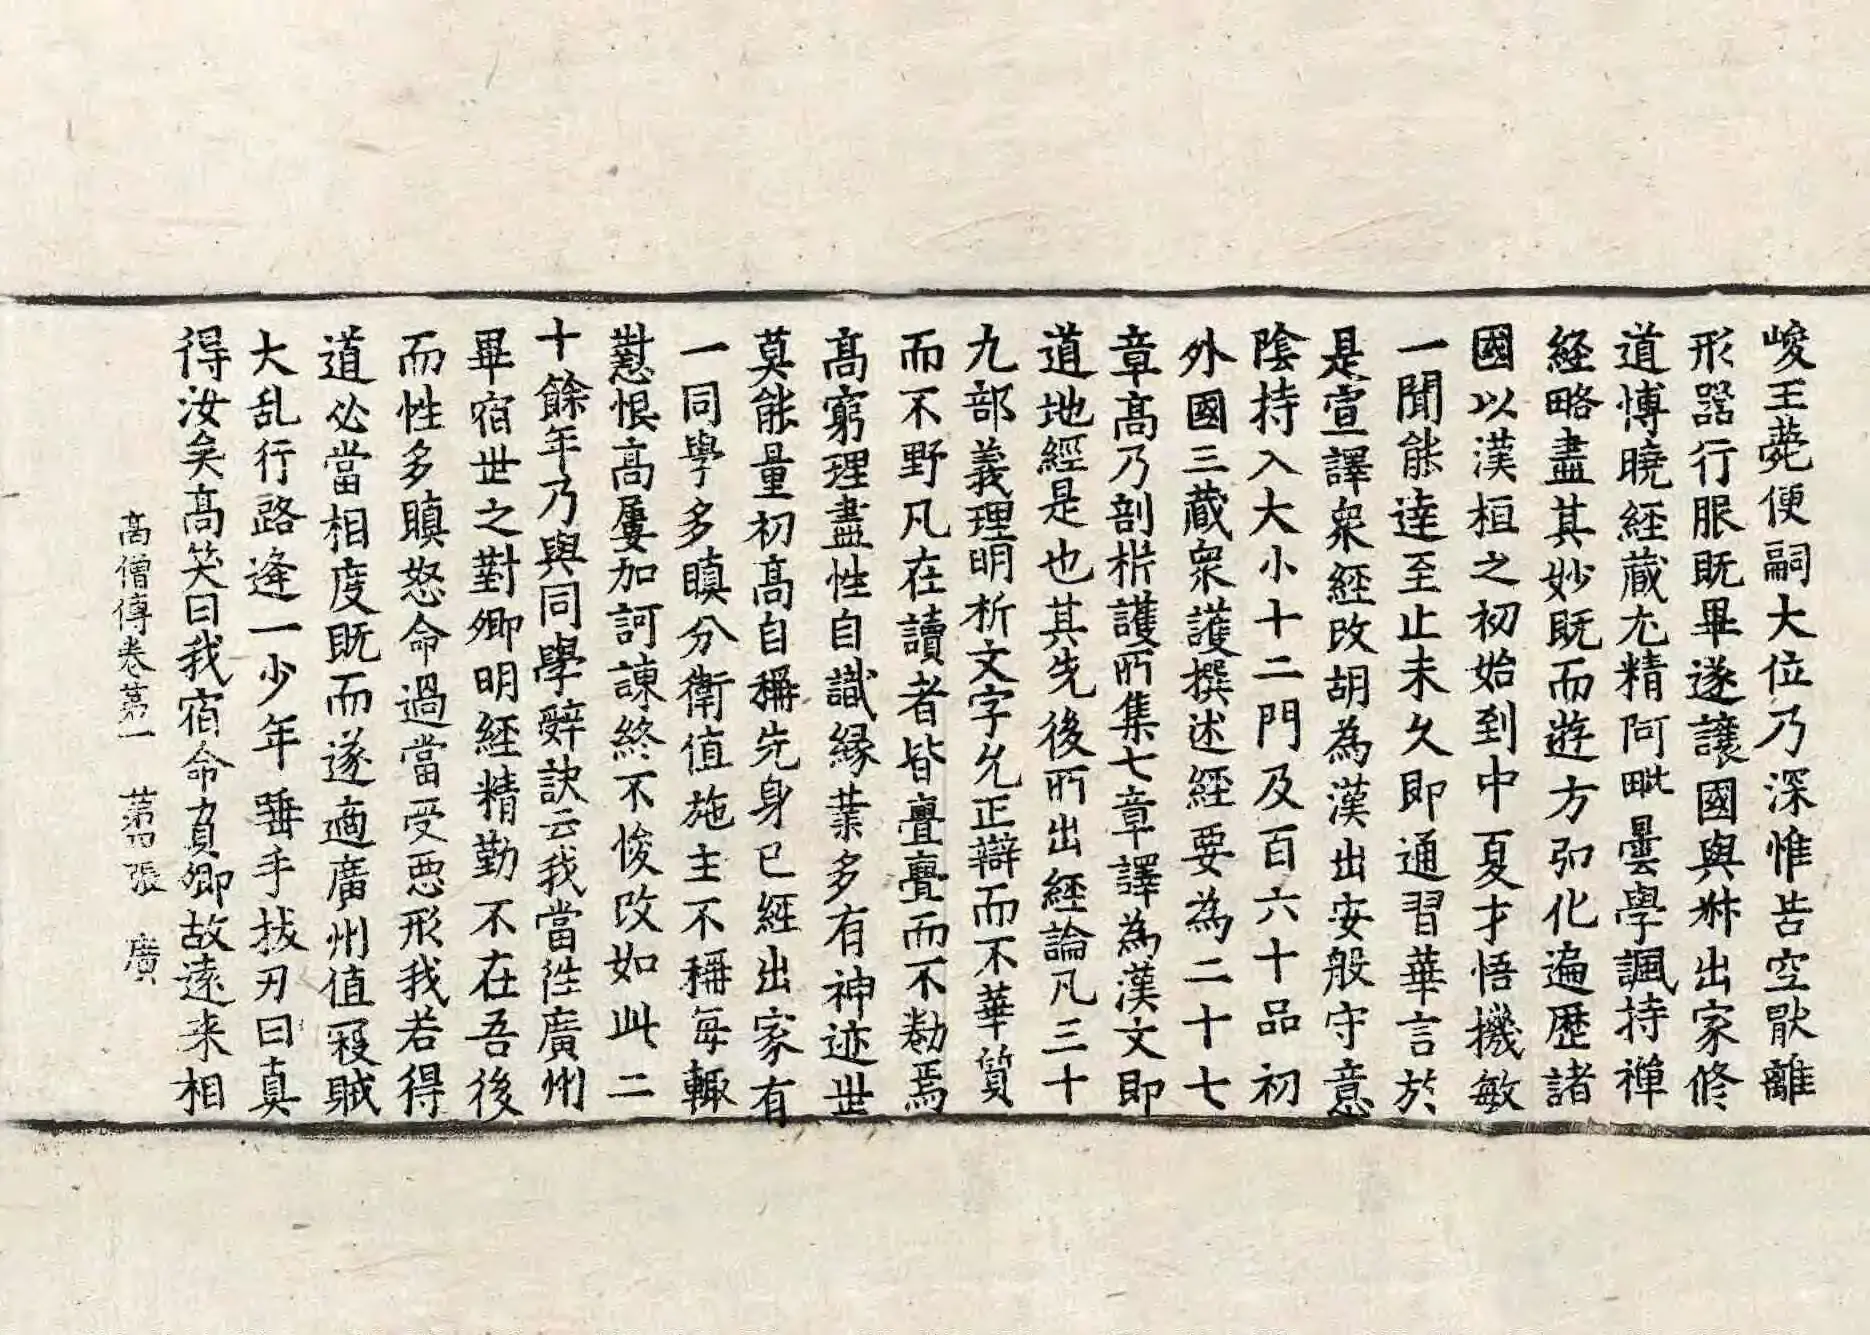 峻王薨便嗣大位乃深惟苦空猒離
形器行服既畢遂讓國與叔出家修
道博曉經蔵尤精阿毗曇學諷持禪
経略盡其妙既而遊方弘化遍歷諸
國以漢桓之初始到中夏才悟機敏
一聞能達至止未久即通習華言於
是宣譯衆經改胡為漢出安般守意
陰持入大小十二門及百六十品初
外國三蔵衆護撰述經要為二十七
章高乃剖析護所集七章譯為漢文即
道地經是也其先後所出經論凡三十
九部義理明析文字允正辯而不華質
而不野凡在讀者皆亹亹而不勌焉
髙窮理盡性自識緣業多有神迹世
莫能量初髙自稱先身已經出家有
一同學多瞋分衛值施主不稱每輙
懟恨髙屢加訶諫終不悛改如此二
十餘年乃與同學辤訣云我當往廣州
畢宿世之對卿明經精勤不在吾後
而性多瞋怒命過當受惡形我若得
道必當相度既而遂適廣州值㓂賊
大乱行路逢一少年唾手拔刃曰真
得汝矣髙笑曰我宿命負卿故遠来相
髙僧傳卷苐一　苐四張　廣